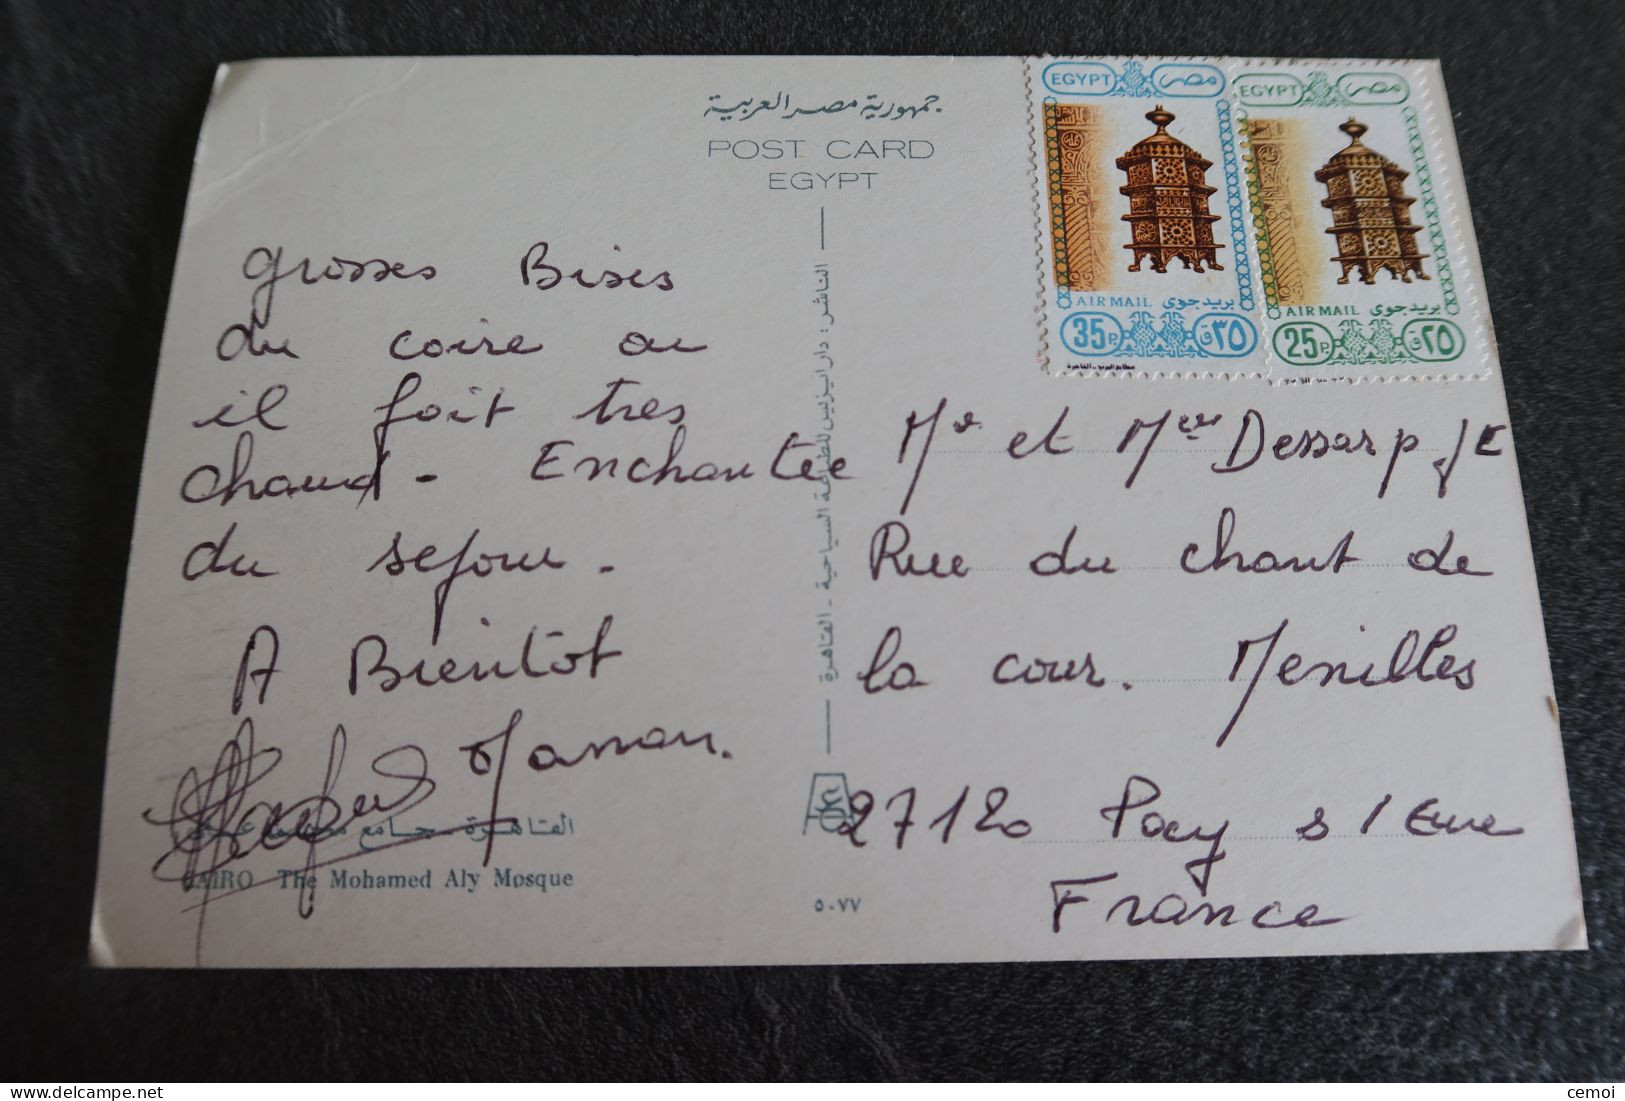 جمهورية مصر العربية
POST CARD
EGYPT
EGYPT مصر
AIR MAIL بريد جوى
35P. ٣٥ق
EGYPT مصر
AIR MAIL بريد جوى
25P. ٢٥ق
grosses Bises
du coire ou
il fait tres
chaud - Enchantée
du sejour.
A Bientot
Manon.
القاهرة - جامع محمد على
CAIRO The Mohamed Aly Mosque
الناشر: دار ايزيس للطباعة السياحية - القاهرة
٥٠٧٧
Mr et Mme Dessarp JC
Rue du chant de
la cour. Menilles
27120 Pacy s/Eure
France
cemoi